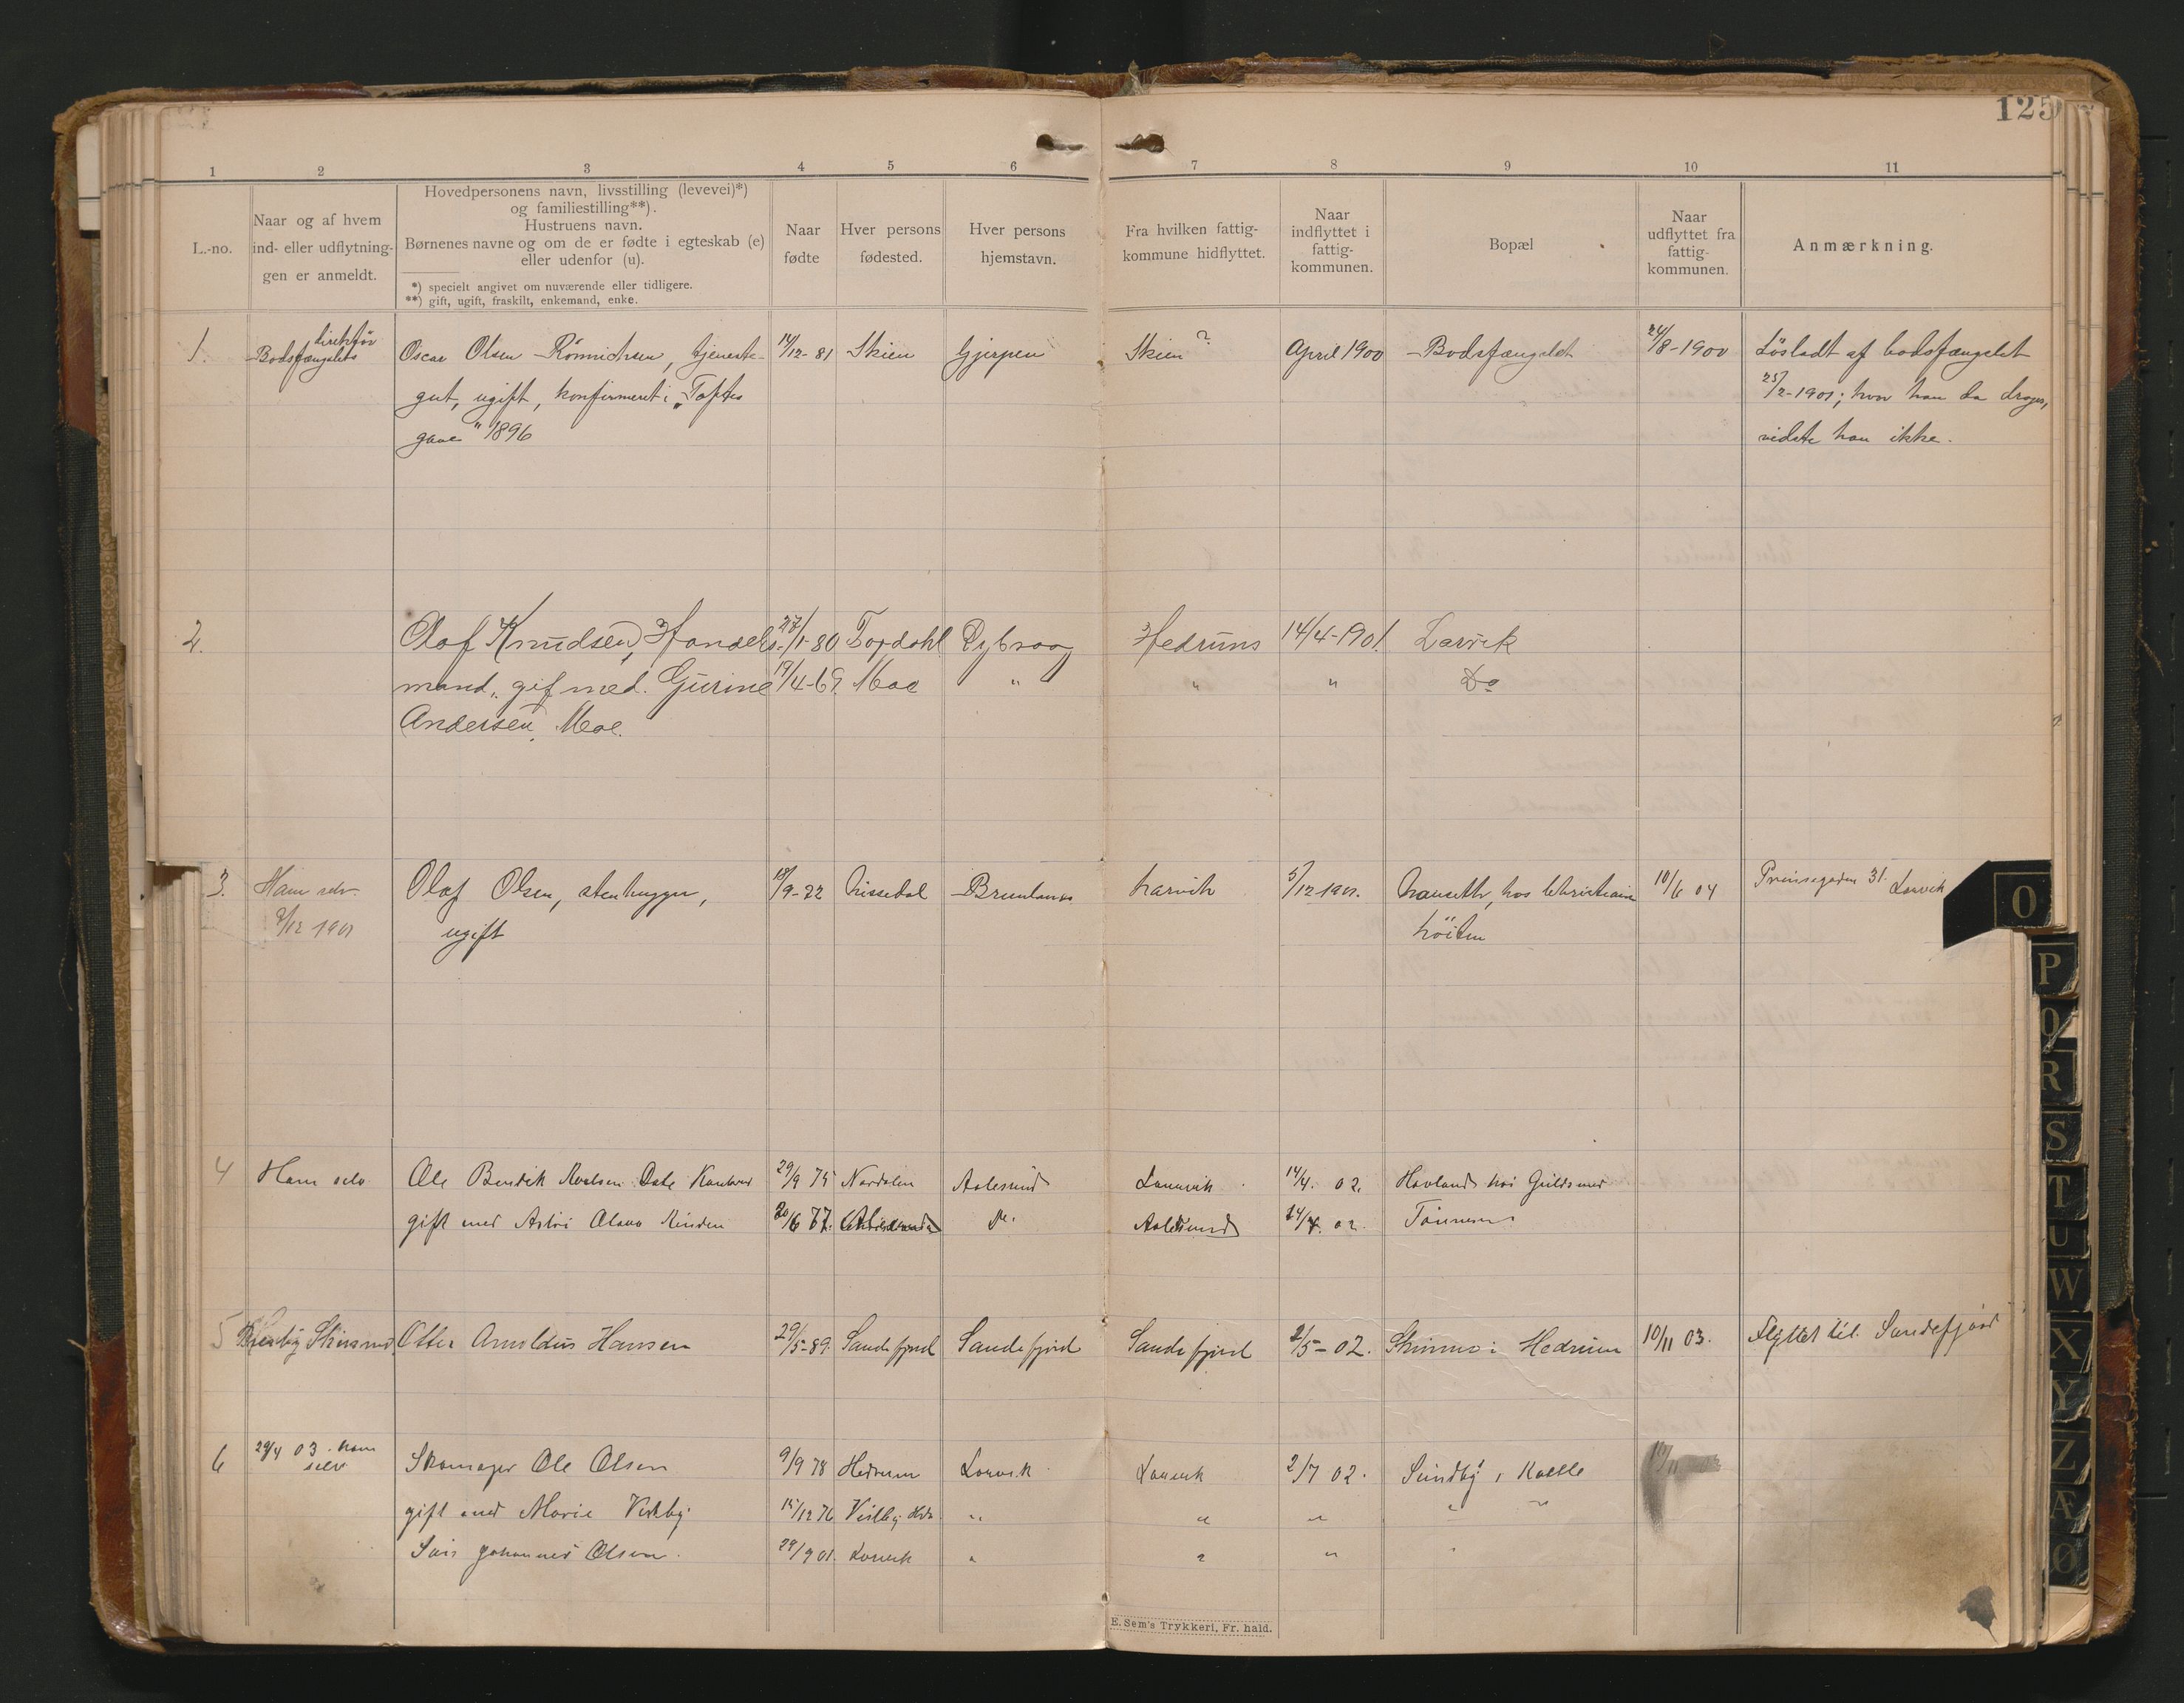 125
1 2 3 4 5 6 7 8 9 10 11
L.-no.
Naar og af hvem
ind- eller udflytnin-
gen er anmeldt.
Hovedpersonens navn, livsstilling (levevei)*)
og familiestilling**).
Hustruens navn.
Børnenes navne og om de er fødte i egteskab (e)
eller udenfor (u).
*) specielt angivet om nuværende eller tidligere.
**) gift, ugift, fraskilt, enkemand, enke.
Naar
fødte
Hver persons
fødested.
Hver persons
hjemstavn.
Fra hvilken fattig-
kommune hidflyttet.
Naar
indflyttet i
fattig-
kommunen.
Bopæl
Naar
udflyttet fra
fattig-
kommunen.
Anmærkning.
direktør
1. Bodsfængslets Oscar Olsen Rönnichsen, tjeneste- 12-81 Skien Gjerpen Skien ? April 1900 Bodsfængslet 24/8-1900 Løsladt af bodsfængslet
gut, ugift, konfirmert i „Toftes 25/2-1901; hvor han da drager,
gave" 1896 vidste han ikke.
2. Olaf Knudsen, Handels- 27/1-80 Tordahl Dybvaag Hedrums 14/4-1901. Larvik
mand, gif med. Gurine /4-69. Moe " " " Do
Andersen, Moe.
3. Ham selv. Olaf Olsen, stenhugger, /9-22 Nissedal Brunlanes Larvik 5/12-1901. Nauseth, hos Christiane 10/6 04 Prinsegaden 31. Larvik
/12 1901 ugift
4 Ham selv Ole Bendik 29/9 75 Nordalen Aalesund Laurvik 14/4. 02. Hovland hos Guldsmed
gift med 20/6 77. Aalesund 02. Tönnesen
5 Otter Arnoldus Hansen 29/5-89. Sandefjord Sandefjord Sandefjord 2/5-02. Skinmo i Hedrum 10/11 03. Flyttet til Sandefjord
6 29/4 03. ham Skomager Ole Olsen 9/9 78 Hedrum Larvik Laurvik 2/7 02. Sundby i Kvelle
selv
gift med Marie Vestby 15/12 76 Vestby Hdr. " " " " "
Johannes Olsen. 29/9 01. Larvik " " " "
E. Sem's Trykkeri, Fr. hald.
O
P
Q
R
S
T
U
W
X
Y
Z
Æ
Ø